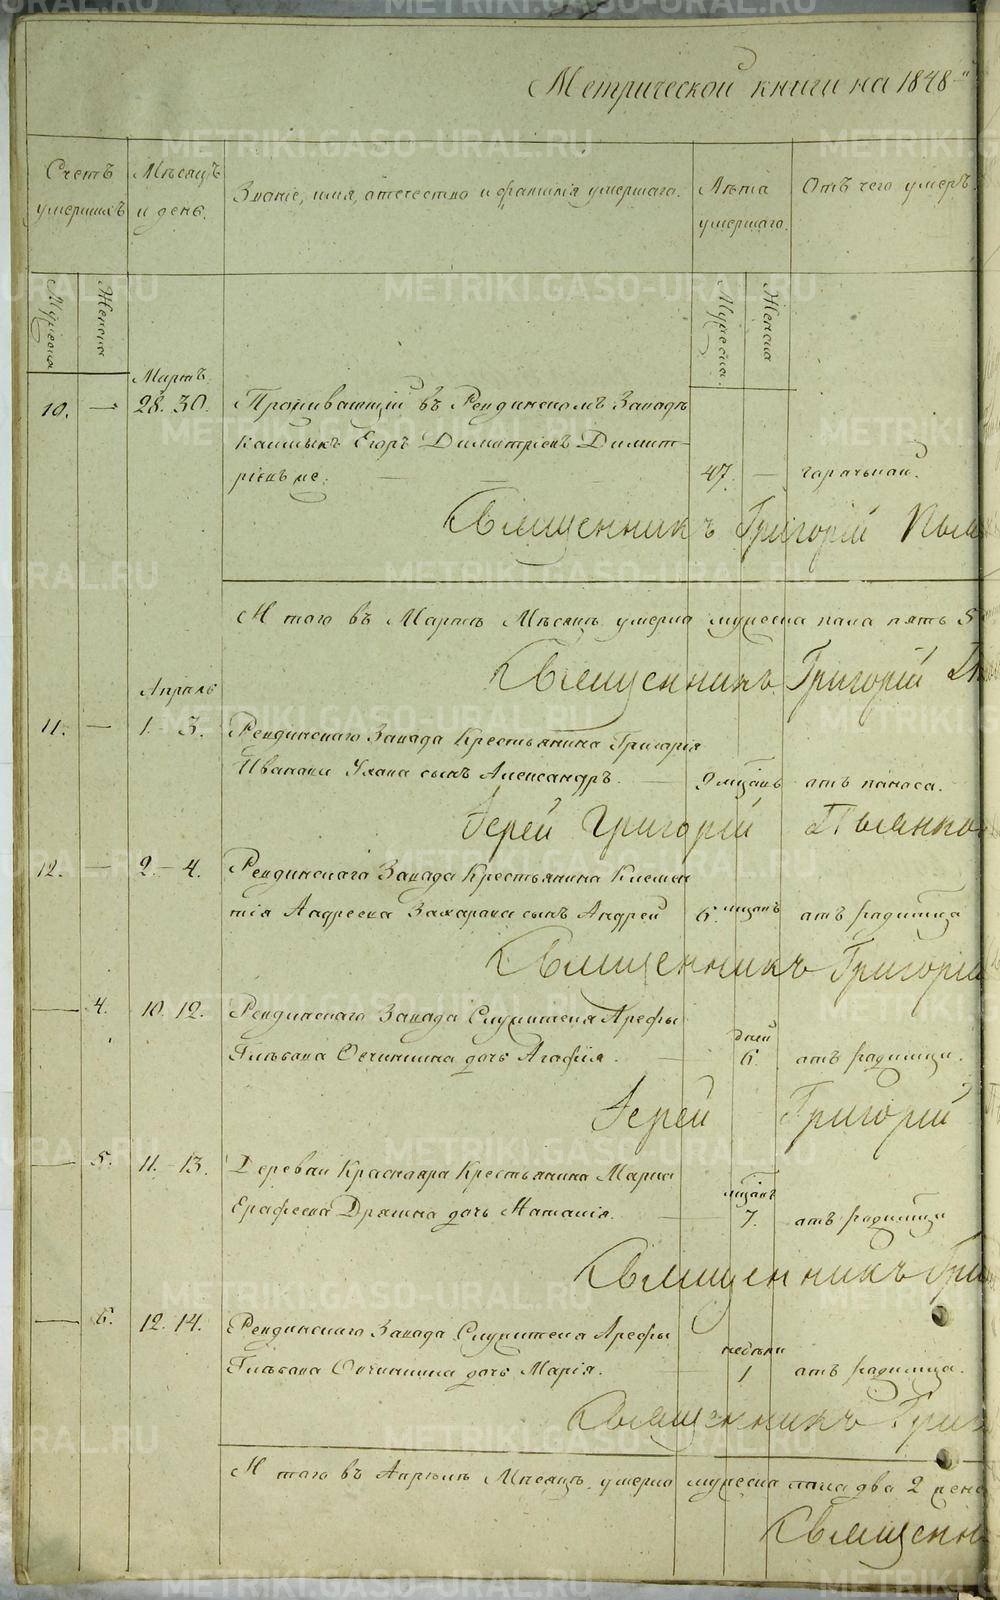 Метрической книги на 1848-й
Счетъ умершихъ
Мѣсяцъ и день.
Званіе, имя, отечество и фамилія умершаго.
Лѣта умершаго.
Отъ чего умеръ.
Мужеска
Женска
Мужеска.
Женска
Мартъ.
10. — 28. 30. Проживающій въ Ревдинскомъ Заводѣ
калмыкъ Егоръ Димитріевъ Димит
ріевъ же. 47. — горячькои.
Священникъ Григорій
И того въ Мартѣ Мѣсяцѣ умерло мужеска пола пять 5
Священникъ Григорій
Апрѣль
11. — 1. 3. Ревдинскаго Завода Крестьянина Григорія
Иванова сынъ Александръ. — 9 мѣсяцъ отъ поноса.
Іерей Григорій Пьянко
12. — 2 — 4. Ревдинскаго Завода Крестьянина Клемен
тія Андреева Захарова сынъ Андрей 6. мѣсяцъ отъ родимца
Священникъ Григорій
— 4. 10. 12. Ревдинскаго Завода Служителя Арефы
Глѣбова Овчинкина дочь Агафія. — дней 6. отъ родимца.
Іерей Григорій
— 5. 11. — 13. Деревни Краснояра Крестьянина Марка
Ерофеева Дрягина дочь Наталія. — мѣсяцъ 7. отъ родимца
Священникъ Гри
— 6. 12. 14. Ревдинскаго Завода Служителя Арефы
Глѣбова Овчинкина дочь Марія. — недѣли 1 отъ родимца.
Священникъ Григ
И того въ Апрѣлѣ Мѣсяцѣ умерло мужеска пола два 2 женс
Священн
METRIKI.GASO-URAL.RU